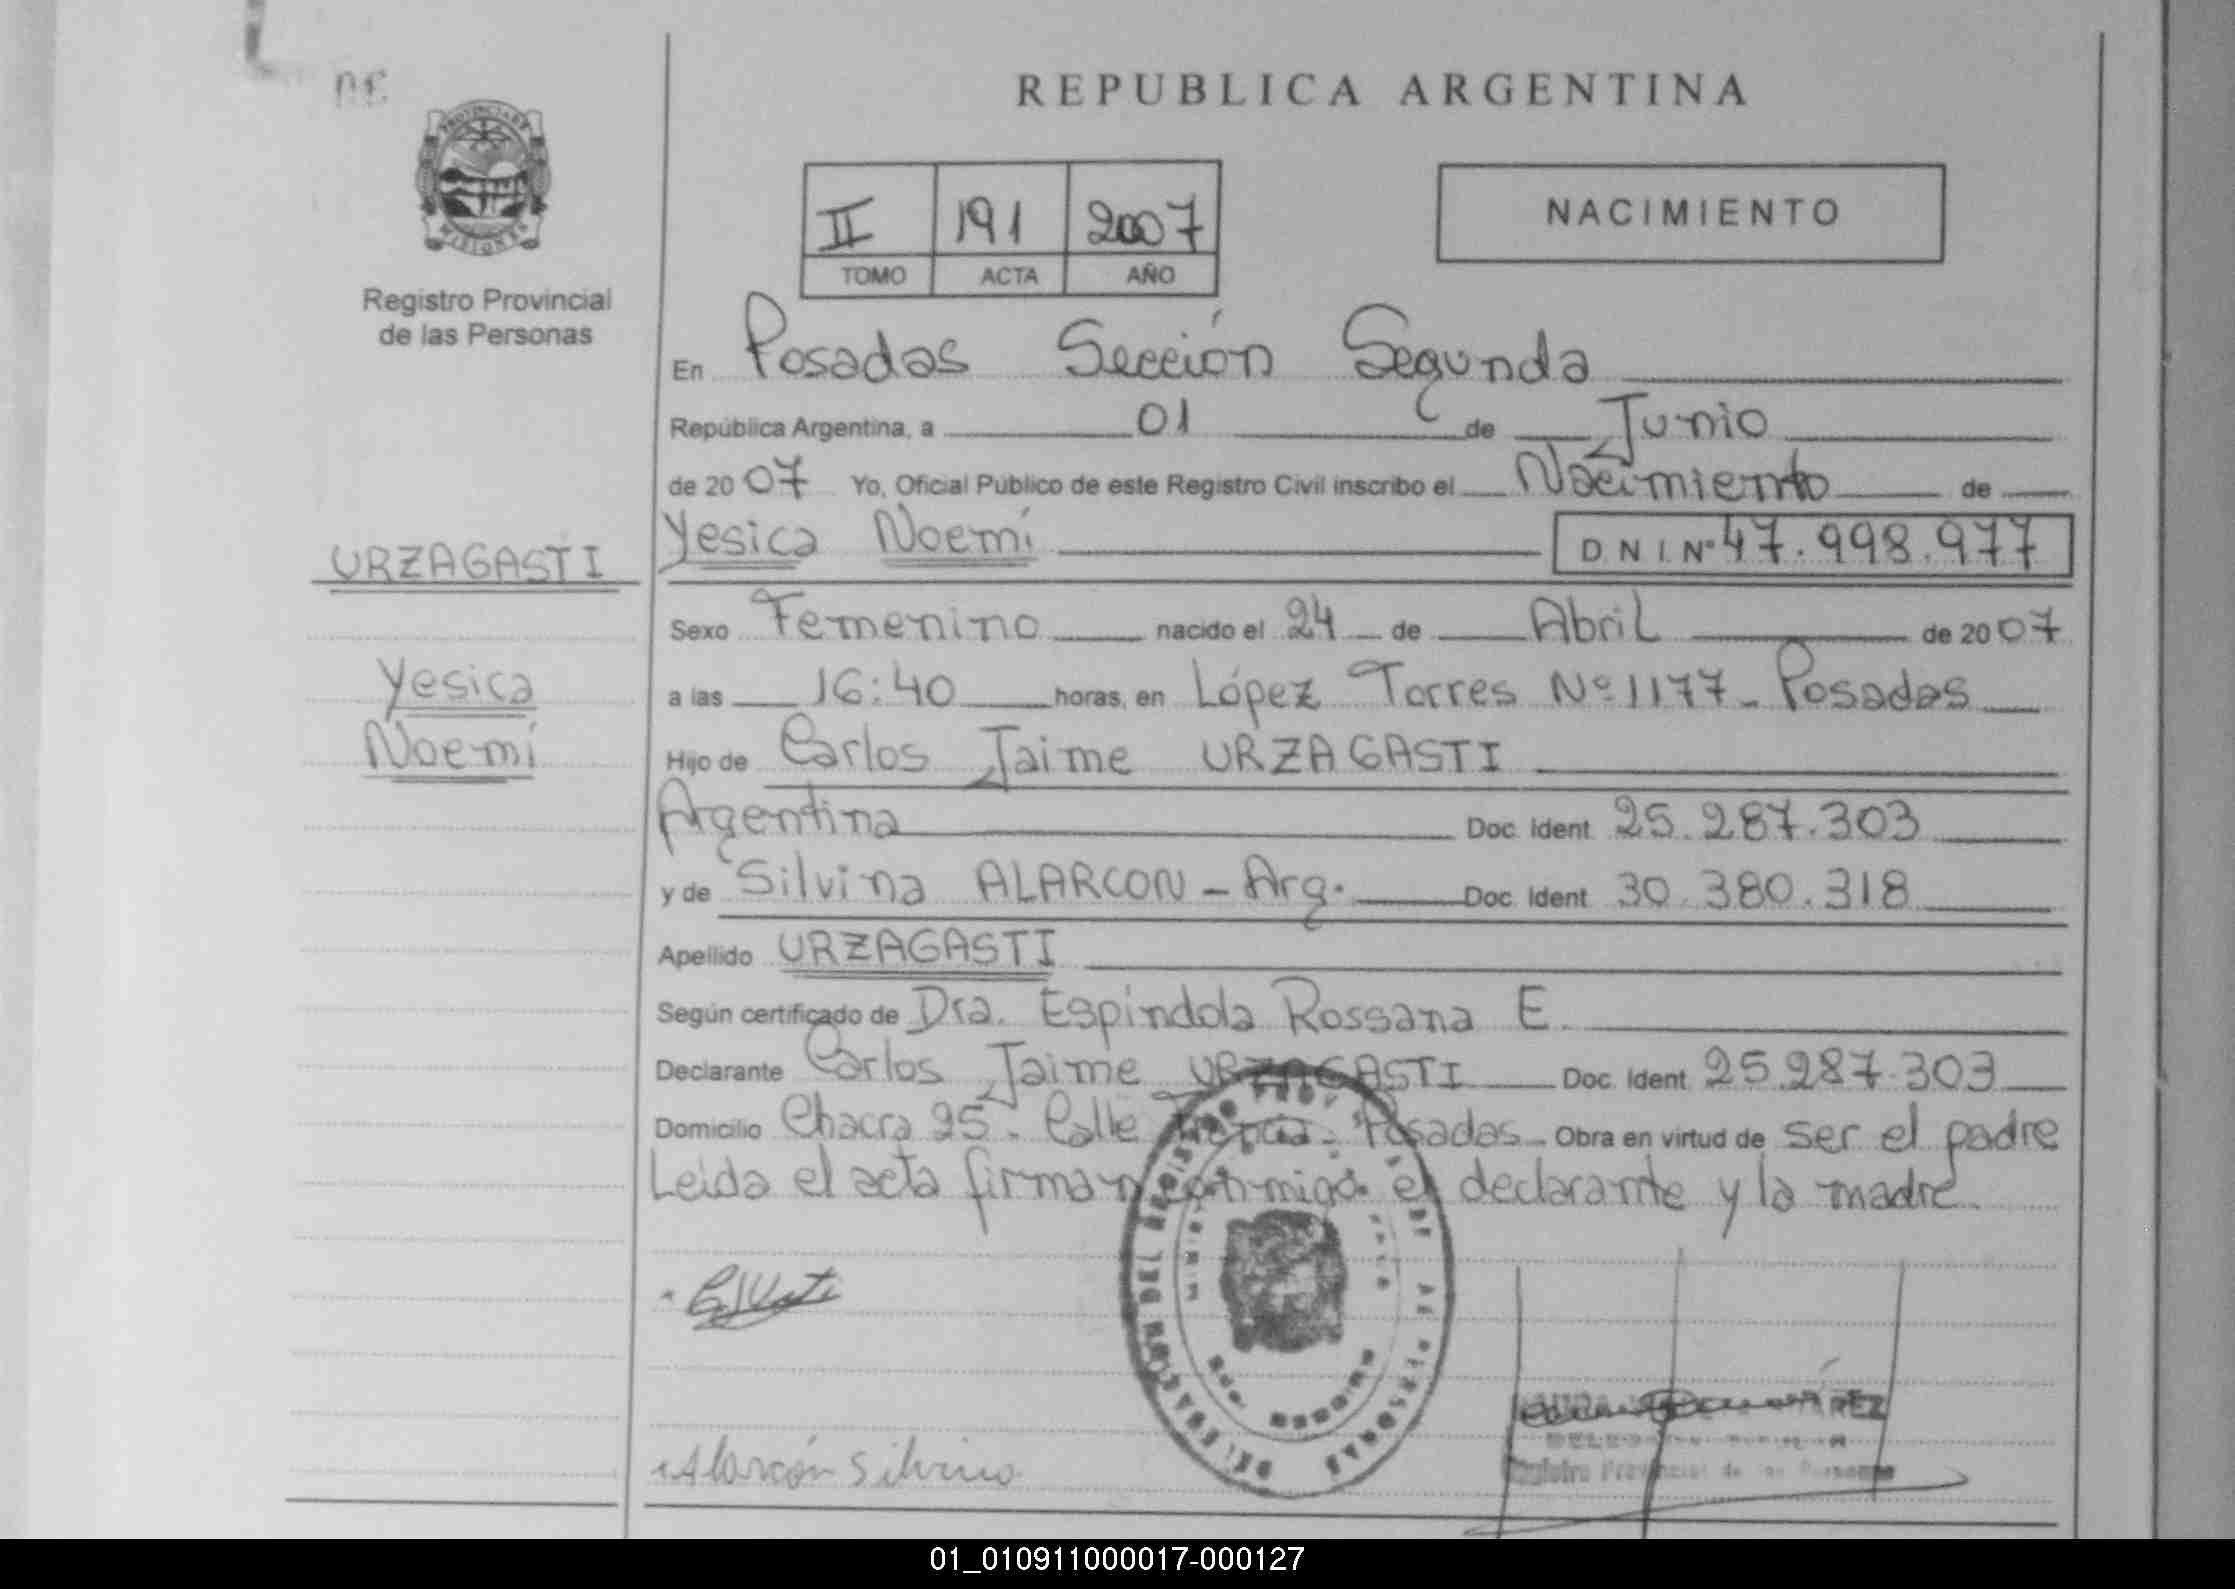 REPUBLICA ARGENTINA
PROVINCIA DE
MISIONES
Registro Provincial
de las Personas
II 191 2007
TOMO ACTA AÑO
NACIMIENTO
En Posadas Sección Segunda
República Argentina, a 01 de Junio
de 2007 Yo, Oficial Público de este Registro Civil inscribo el Nacimiento de
Yesica Noemí D.N.I. Nº 47.998.977
URZAGASTI
Yesica
Noemí
Sexo Femenino nacido el 24 de Abril de 2007
a las 16:40 horas, en López Torres Nº 1177 - Posadas
Hijo de Carlos Jaime URZAGASTI
Argentina Doc. Ident. 25.287.303
y de Silvina ALARCON - Arg. Doc. Ident. 30.380.318
Apellido URZAGASTI
Según certificado de Dra. Espindola Rossana E.
Declarante Carlos Jaime URZAGASTI Doc. Ident. 25.287.303
Domicilio Chacra 95 - Calle Posadas - Obra en virtud de ser el padre
Leída el acta firman conmigo el declarante y la madre.
DELEGACION DEL REGISTRO PROV. DE LAS PERSONAS
Alarcón Silvina
Registro Provincial de las Personas
01_010911000017-000127